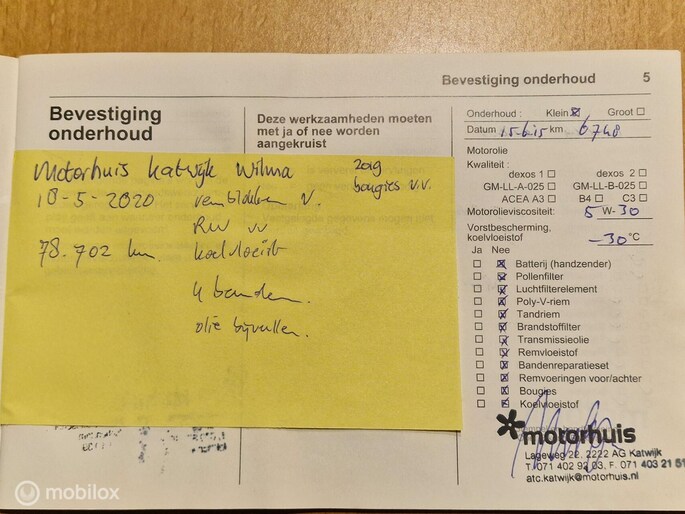 Bevestiging onderhoud 5
Bevestiging
onderhoud
Deze werkzaamheden moeten
met ja of nee worden
aangekruist
Motorhuis Katwijk Wilma
18-5-2020
78.702 km
2019
bougies v.v.
remblokken V.
RW vv
koelvloeist
4 banden.
olie bijvullen.
Onderhoud : Klein ☒ Groot ☐
Datum 15-6-15 km 6748
Motorolie
Kwaliteit :
dexos 1 ☐ dexos 2 ☐
GM-LL-A-025 ☐ GM-LL-B-025 ☐
ACEA A3 ☐ B4 ☐ C3 ☐
Motorolieviscositeit: 5 W-30
Vorstbescherming,
koelvloeistof -30 °C
Ja Nee
☐ ☒ Batterij (handzender)
☐ ☒ Pollenfilter
☐ ☒ Luchtfilterelement
☐ ☒ Poly-V-riem
☐ ☒ Tandriem
☐ ☒ Brandstoffilter
☐ ☒ Transmissieolie
☐ ☒ Remvloeistof
☐ ☒ Bandenreparatieset
☐ ☒ Remvoeringen voor/achter
☐ ☒ Bougies
☐ ☒ Koelvloeistof
motorhuis
Lageweg 22, 2222 AG Katwijk
T. 071 402 92 03, F. 071 403 21 51
atc.katwijk@motorhuis.nl
mobilox